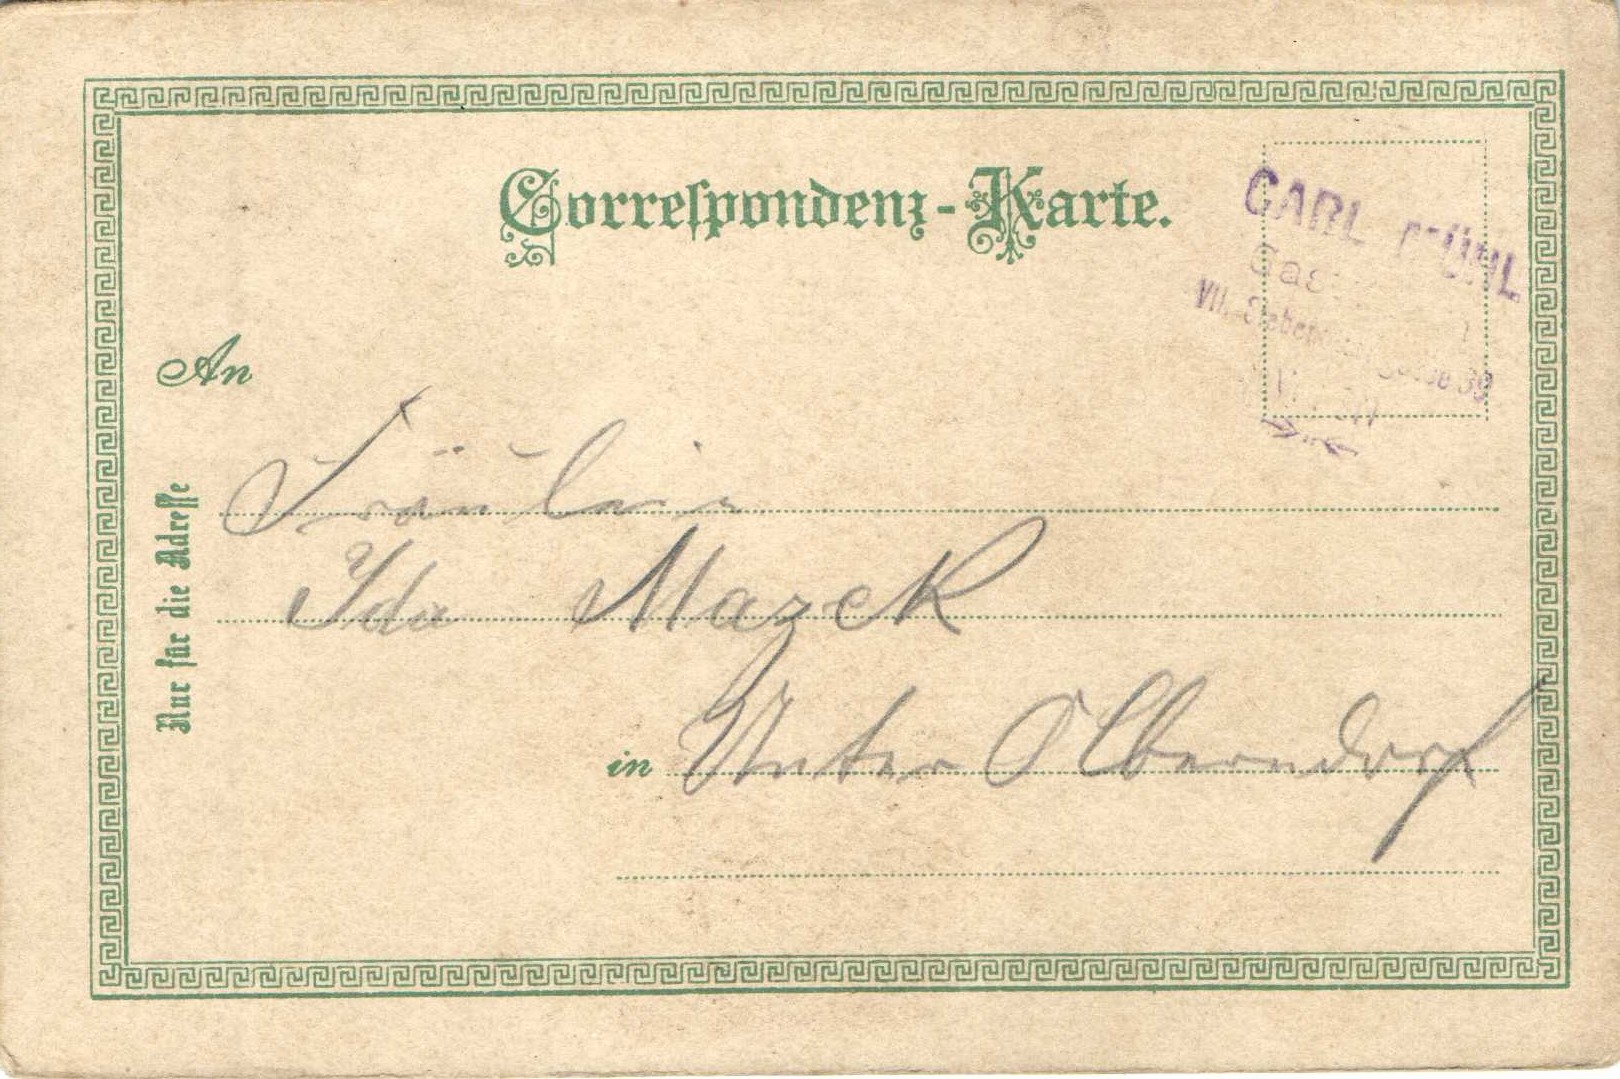 Correspondenz-Karte.
CARL
VII.
39
An
Fräulein
Ida Mazek
in Unter Olberndorf
Nur für die Adresse